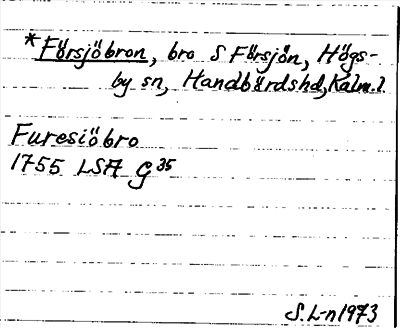 *Försjöbron, bro S Försjön, Högs-
by sn, Handbördshd, Kalm.l.
Furesiöbro
1755 LSA G35
S.L-n 1973